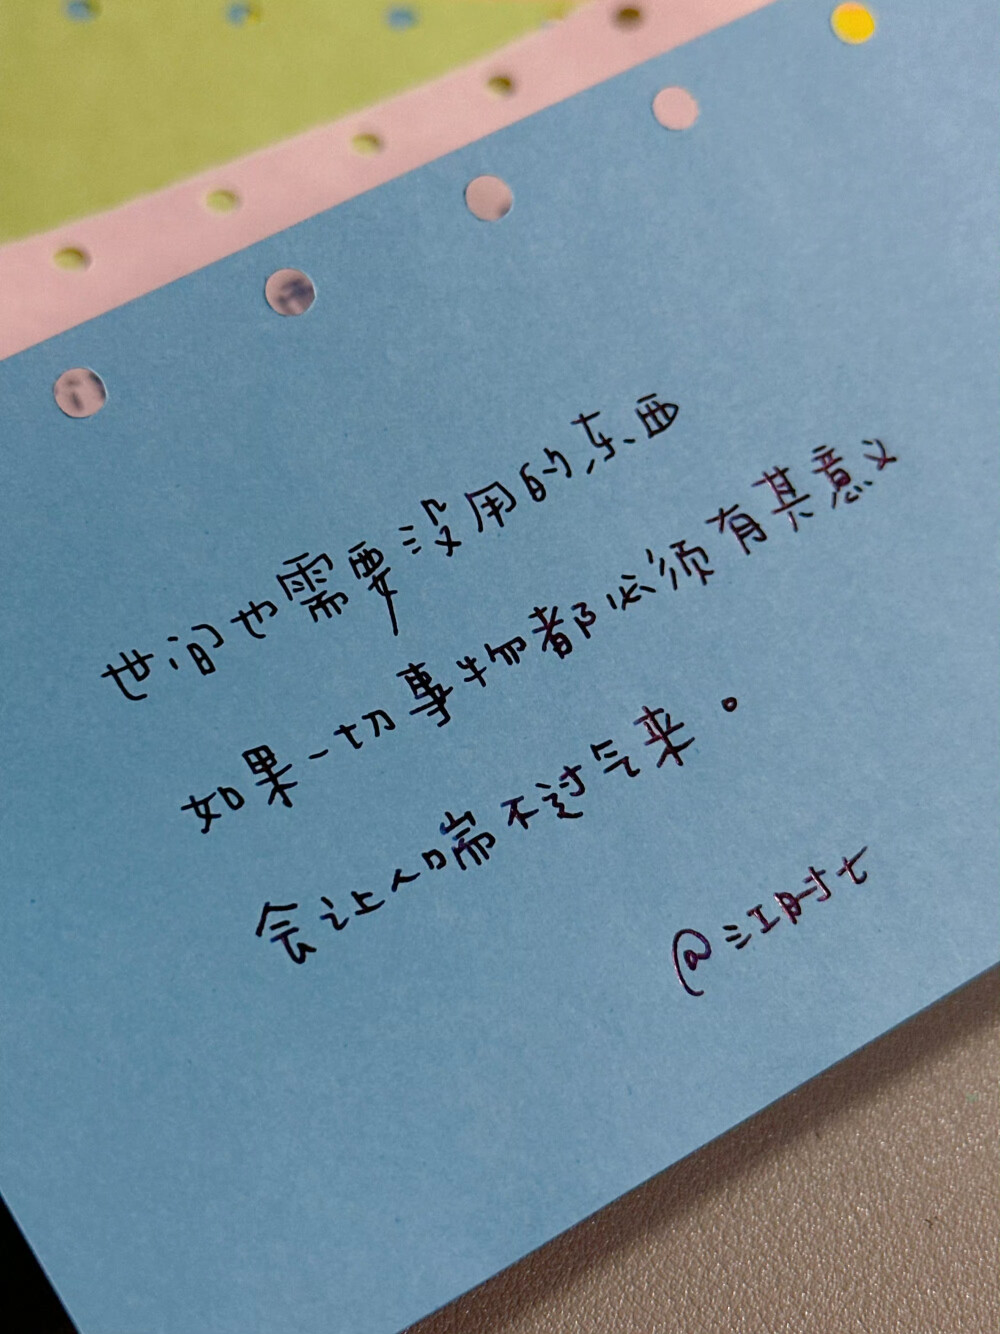 世间也需要没用的东西
如果一切事物都必须有其意义
会让人喘不过气来。
@江时七